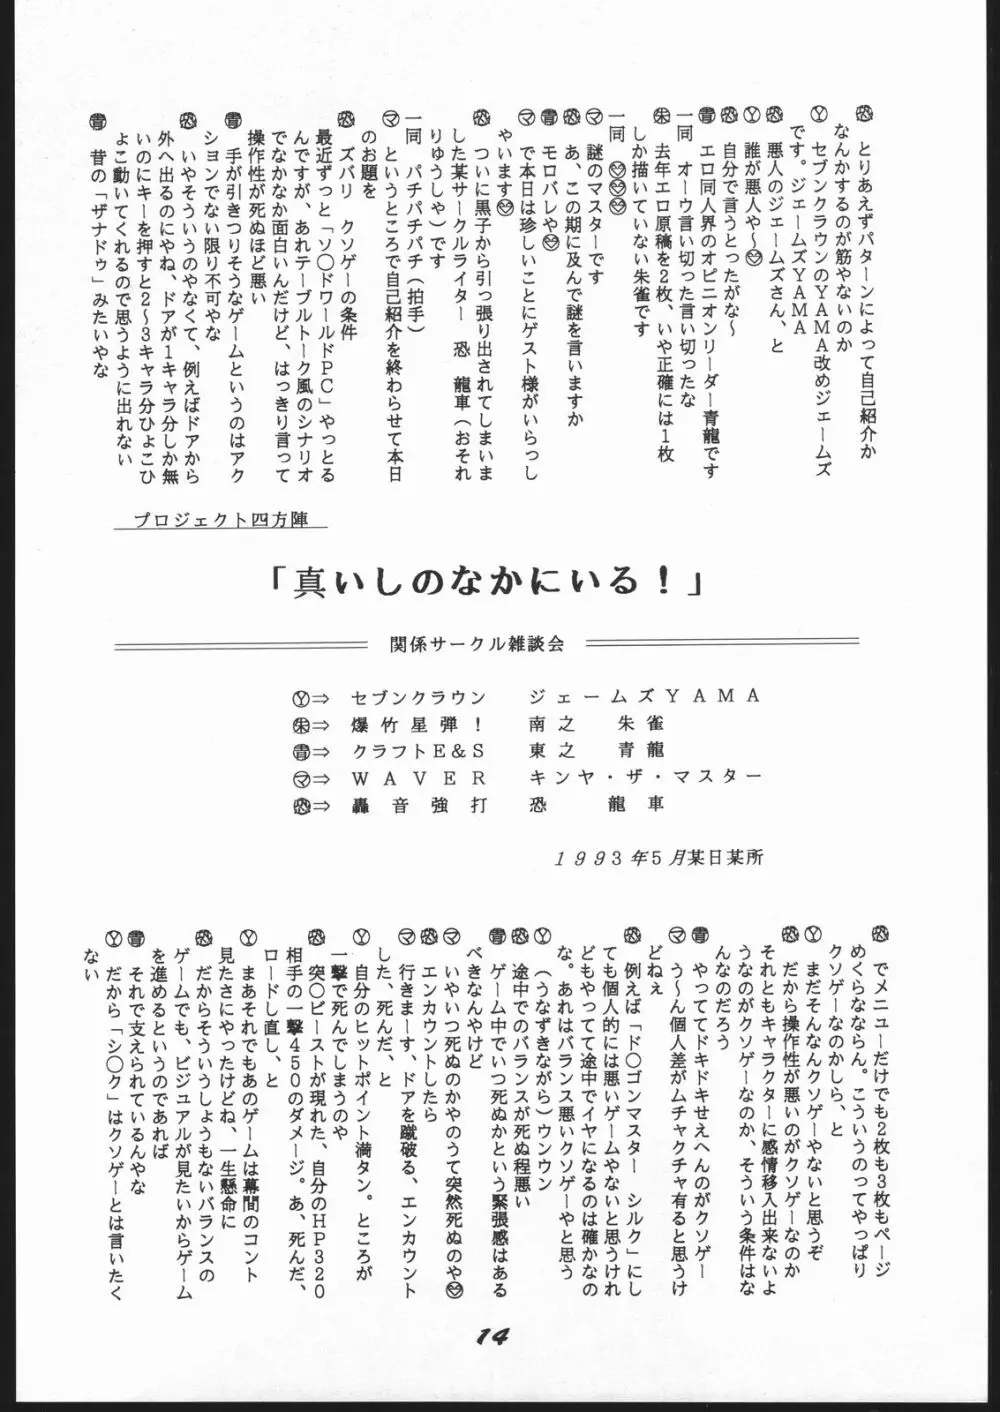 ㊪ とりあえずパターンによって自己紹介か
なんかするのが筋やないのか
Ⓨ セブンクラウンのYAMA改めジェームズ
です。ジェームズYAMA
㊪ 悪人のジェームズさん、と
Ⓨ 誰が悪人や〜
㊪ 自分で言うとったがな〜
青 エロ同人界のオピニオンリーダー青龍です
一同 オーウ言い切った言い切ったな
朱 去年エロ原稿を2枚、いや正確には1枚
しか描いていない朱雀です
一同
マ 謎のマスターです
恐 あ、この期に及んで謎を言いますか
青 モロバレや
マ で本日は珍しいことにゲスト様がいらっし
ゃいます
恐 ついに黒子から引っ張り出されてしまいま
した某サークルライター 恐 龍車(おそれ
りゅうしゃ)です
一同 パチパチパチ(拍手)
マ というところで自己紹介を終わらせて本日
のお題を
恐 ズバリ クソゲーの条件
最近ずっと「ソ〇ドワールドPC」やっとる
んですが、あれテーブルトーク風のシナリオ
でなかなか面白いんだけど、はっきり言って
操作性が死ぬほど悪い
青 手が引きつりそうなゲームというのはアク
ションでない限り不可やな
恐 いやそういうのやなくて、例えばドアから
外へ出るのにやね、ドアが1キャラ分しか無
いのにキーを押すと2〜3キャラ分ひょこひ
ょこ動いてくれるので思うように出れない
青 昔の「ザナドゥ」みたいやな
プロジェクト四方陣
「真いしのなかにいる！」
関係サークル雑談会
Ⓨ⇒ セブンクラウン ジェームズYAMA
朱⇒ 爆竹星弾！ 南之 朱雀
青⇒ クラフトE&S 東之 青龍
マ⇒ WAVER キンヤ・ザ・マスター
恐⇒ 轟音強打 恐 龍車
1993年5月某日某所
恐 でメニューだけでも2枚も3枚もページ
めくらなならん。こういうのってやっぱり
クソゲーなのかしら、と
Ⓨ まだそんなんクソゲーやないと思うぞ
恐 だから操作性が悪いのがクソゲーなのか
それともキャラクターに感情移入出来ないよ
うなのがクソゲーなのか、そういう条件はな
んなのだろう
青 やっててドキドキせえへんのがクソゲー
マ う〜ん個人差がムチャクチャ有ると思うけ
どねぇ
恐 例えば「ド〇ゴンマスター シルク」にし
ても個人的には悪いゲームやないと思うけれ
どもやってて途中でイヤになるのは確かなの
な。あれはバランス悪いクソゲーやと思う
Ⓨ (うなずきながら)ウンウン
恐 途中でのバランスが死ぬ程悪い
青 ゲーム中でいつ死ぬかという緊張感はある
べきなんやけど
マ いやいつ死ぬのかやのうて突然死ぬのや
恐 エンカウントしたら
マ 行きまーす、ドアを蹴破る、エンカウント
した、死んだ、と
Ⓨ 自分のヒットポイント満タン。ところが
一撃で死んでしまうのや
恐 突〇ビーストが現れた、自分のHP320
相手の一撃450のダメージ。あ、死んだ、
ロードし直し、と
Ⓨ まあそれでもあのゲームは幕間のコント
見たさにやったけどね、一生懸命に
恐 だからそういうしょうもないバランスの
ゲームでも、ビジュアルが見たいからゲーム
を進めるというのであれば
青 それで支えられているんやな
Ⓨ だから「シ〇ク」はクソゲーとは言いたく
ない
14